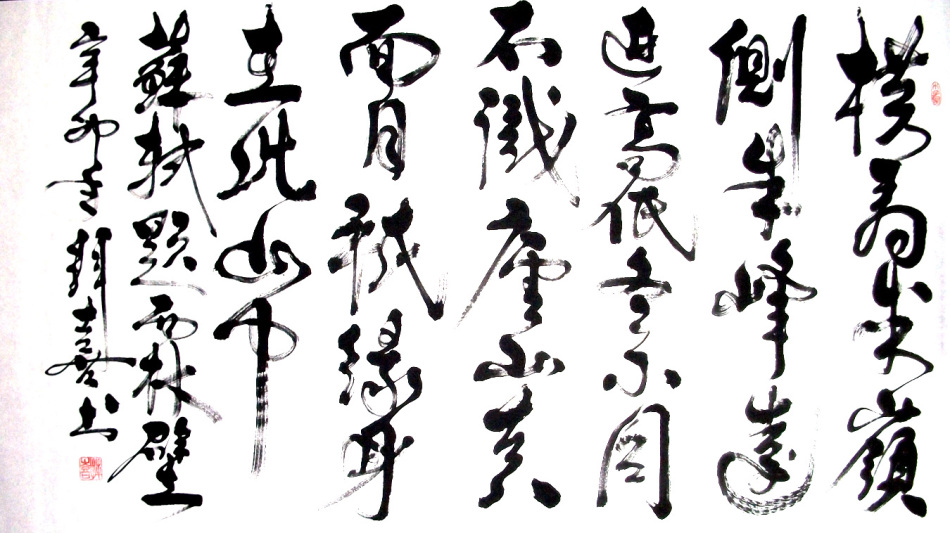 橫看成嶺
側成峰遠
近高低各不同
不識廬山真
面目祇緣身
在此山中
蘇軾題西林壁
辛卯冬 书